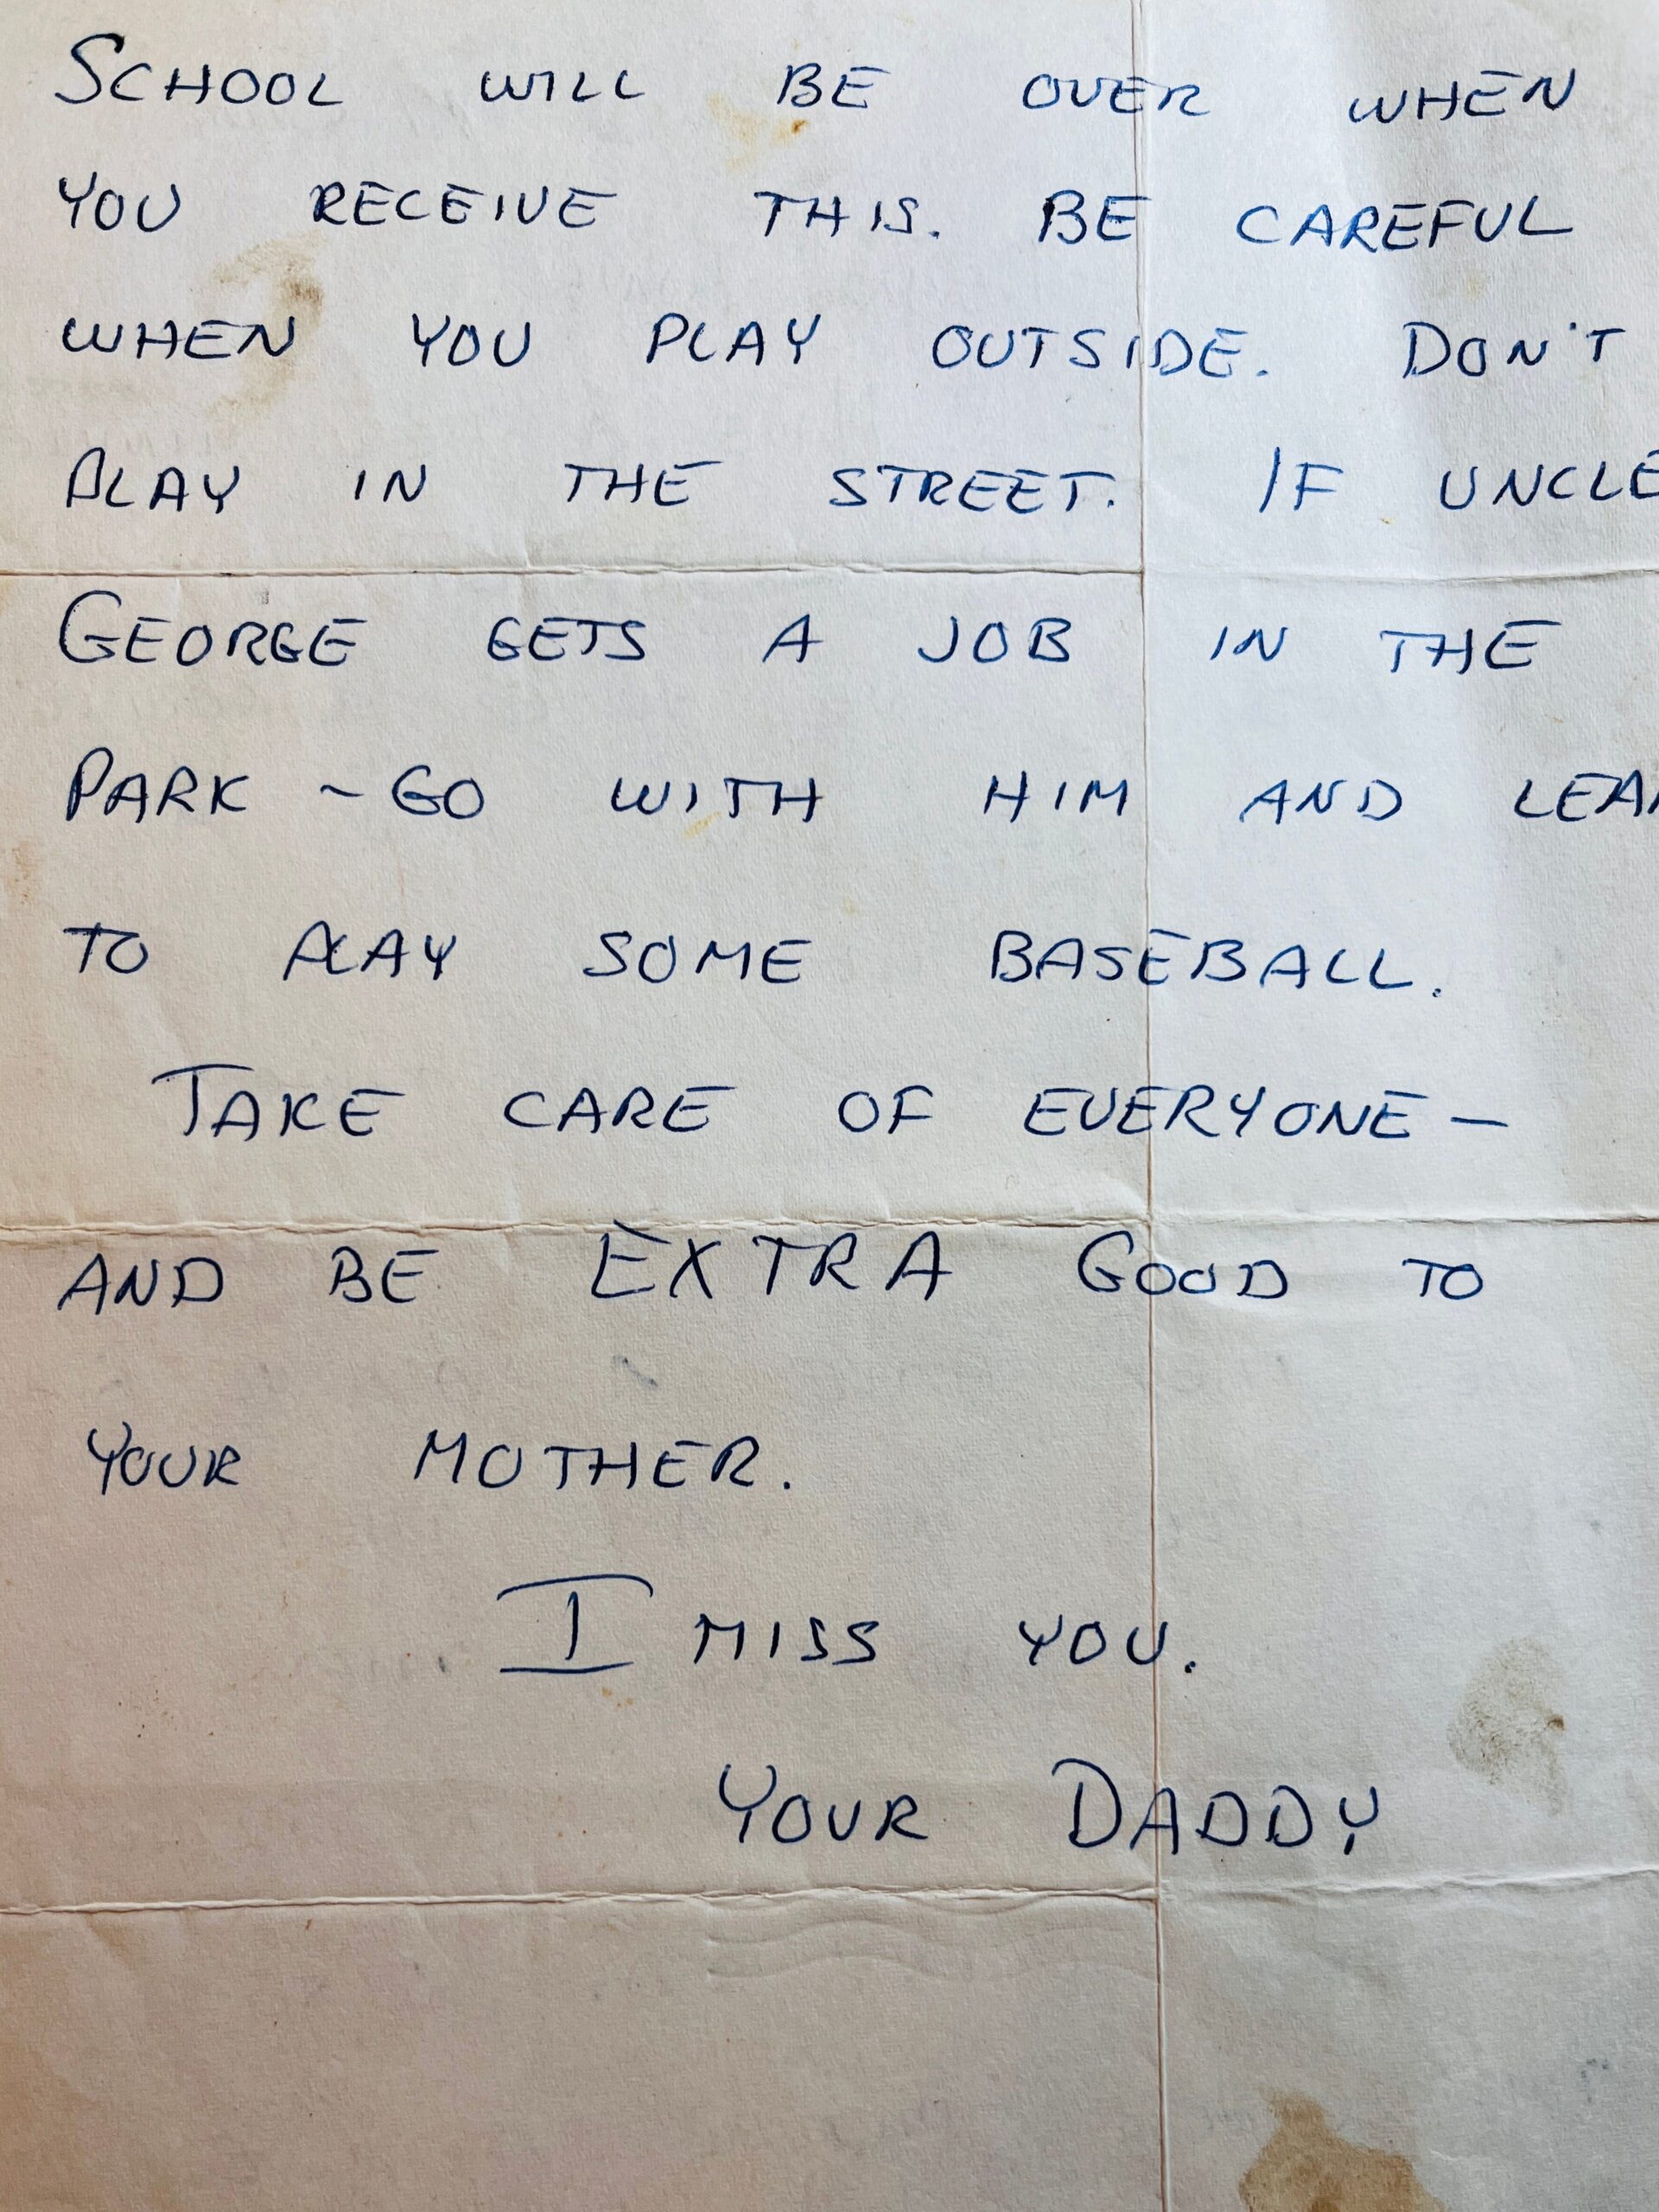 SCHOOL WILL BE OVER WHEN
YOU RECEIVE THIS. BE CAREFUL
WHEN YOU PLAY OUTSIDE. DON'T
PLAY IN THE STREET. IF UNCLE
GEORGE GETS A JOB IN THE
PARK - GO WITH HIM AND
TO PLAY SOME BASEBALL.
TAKE CARE OF EVERYONE -
AND BE EXTRA GOOD TO
YOUR MOTHER.
I MISS YOU.
YOUR DADDY